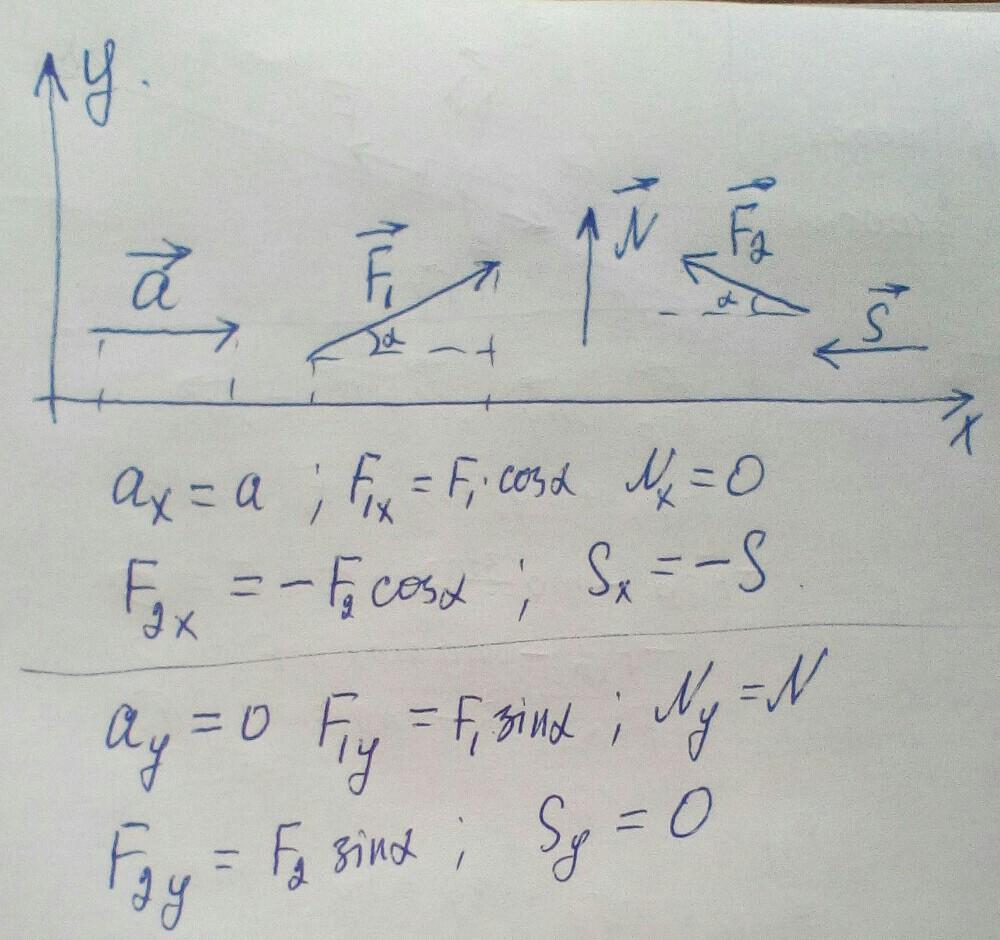 y.
a⃗ F⃗₁ α N⃗ F⃗₂ α S⃗
x
aₓ = a ; F₁ₓ = F₁·cosα Nₓ = 0
F₂ₓ = −F₂cosα ; Sₓ = −S.
a_y = 0 F₁_y = F₁ sinα ; N_y = N
F₂_y = F₂ sinα ; S_y = 0